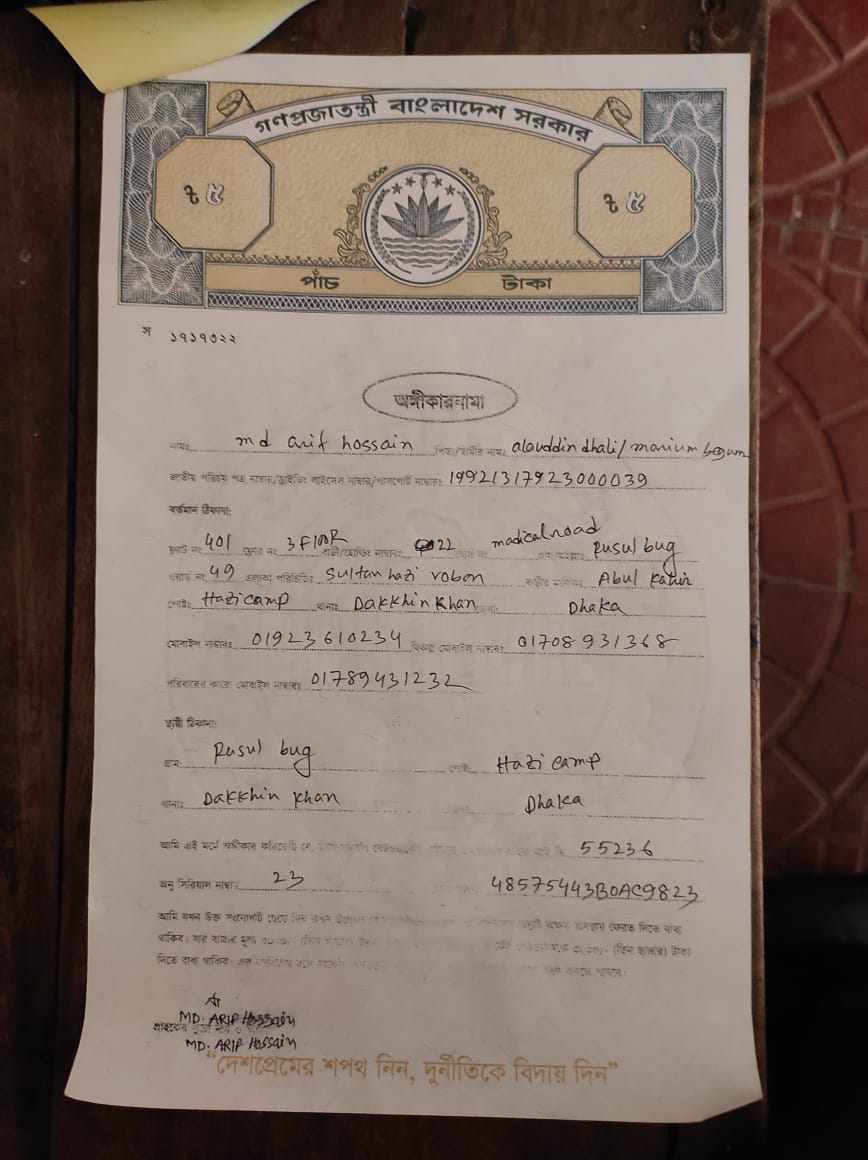 গণপ্রজাতন্ত্রী বাংলাদেশ সরকার
৳ ৫ ৳ ৫
পাঁচ টাকা
স ১৭১৭৩২২
অঙ্গীকারনামা
নামঃ md arif hossain পিতা/স্বামীর নামঃ alauddin dhali/ marium begum
জাতীয় পরিচয় পত্র নাম্বার/ড্রাইভিং লাইসেন্স নাম্বার/পাসপোর্ট নাম্বারঃ 19921317923000039
বর্তমান ঠিকানা:
ফ্ল্যাট নং 401 ফ্লোর নং 3 বাড়ী/হোল্ডিং নাম্বারঃ 22 madical road Rusul bug
ওয়ার্ড নং 49 এলাকা পরিচিতিঃ Sultan hazi বাড়ীর মালিকঃ Abul
পোষ্টঃ Hazi camp থানাঃ Dakkhin Khan Dhaka
মোবাইল নাম্বারঃ 01923610234 বিকল্প মোবাইল নাম্বারঃ 01708931368
পরিবারের কারো মোবাইল নাম্বারঃ 01789431232
স্থায়ী ঠিকানা:
গ্রামঃ Rusul bug পোষ্টঃ Hazi camp
থানাঃ Dakkhin Khan Dhaka
আমি এই মর্মে অঙ্গীকার করিতেছি যে, 55236
অনু সিরিয়াল নাম্বার 23 48575443B0AC9823
আমি যখন উক্ত সংযোগটি ছেড়ে দিব তখন ফেরত দিতে বাধ্য
থাকিব। যার বাজার মূল্য (তিন হাজার) টাকা
দিতে বাধ্য থাকিব।
MD. ARIF Hossain
MD. ARIF Hossain
“দেশপ্রেমের শপথ নিন, দুর্নীতিকে বিদায় দিন”